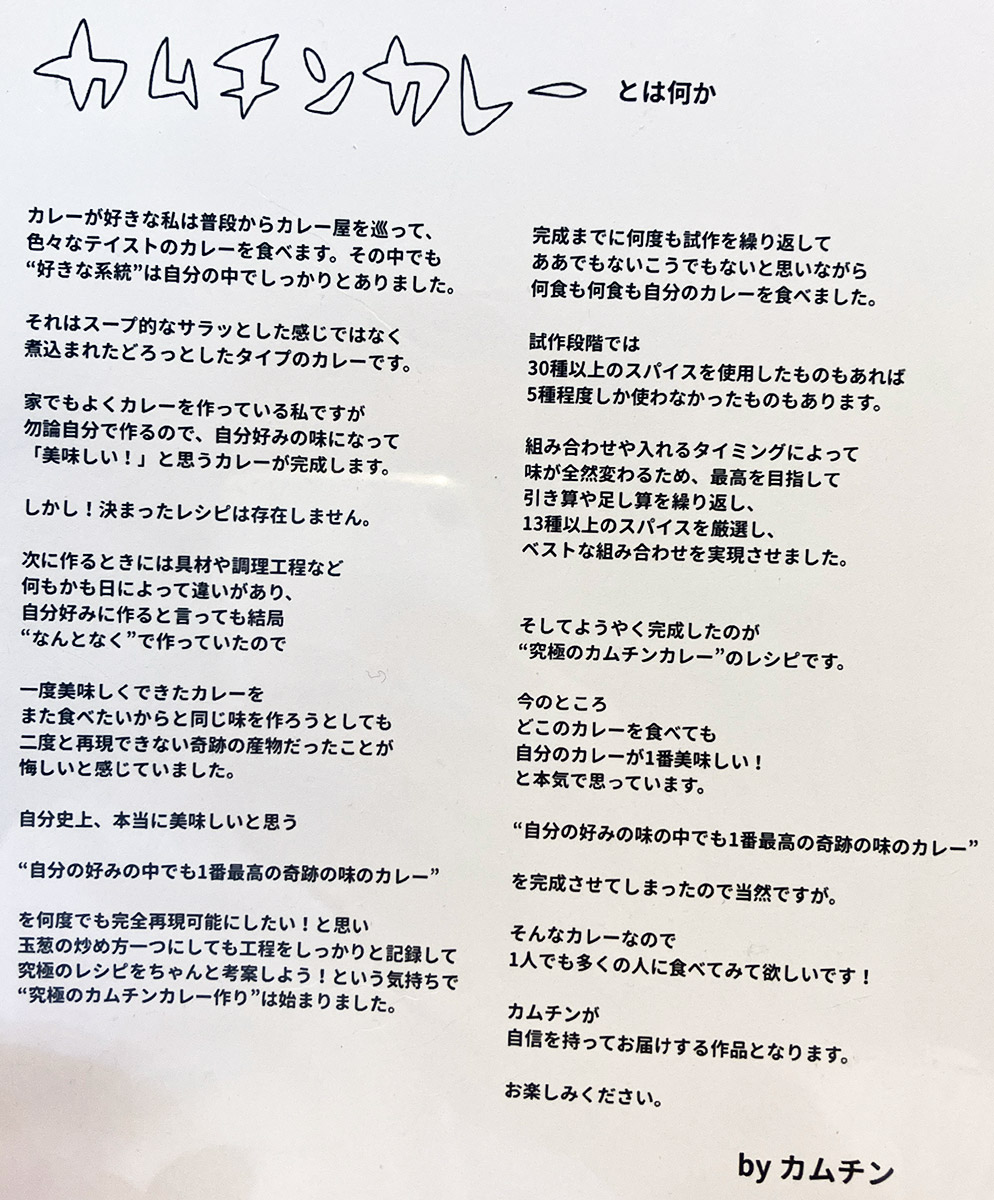 カムチンカレー とは何か
カレーが好きな私は普段からカレー屋を巡って、
色々なテイストのカレーを食べます。その中でも
“好きな系統”は自分の中でしっかりとありました。
それはスープ的なサラッとした感じではなく
煮込まれたどろっとしたタイプのカレーです。
家でもよくカレーを作っている私ですが
勿論自分で作るので、自分好みの味になって
「美味しい！」と思うカレーが完成します。
しかし！決まったレシピは存在しません。
次に作るときには具材や調理工程など
何もかも日によって違いがあり、
自分好みに作ると言っても結局
“なんとなく”で作っていたので
一度美味しくできたカレーを
また食べたいからと同じ味を作ろうとしても
二度と再現できない奇跡の産物だったことが
悔しいと感じていました。
自分史上、本当に美味しいと思う
“自分の好みの中でも1番最高の奇跡の味のカレー”
を何度でも完全再現可能にしたい！と思い
玉葱の炒め方一つにしても工程をしっかりと記録して
究極のレシピをちゃんと考案しよう！という気持ちで
“究極のカムチンカレー作り”は始まりました。
完成までに何度も試作を繰り返して
ああでもないこうでもないと思いながら
何食も何食も自分のカレーを食べました。
試作段階では
30種以上のスパイスを使用したものもあれば
5種程度しか使わなかったものもあります。
組み合わせや入れるタイミングによって
味が全然変わるため、最高を目指して
引き算や足し算を繰り返し、
13種以上のスパイスを厳選し、
ベストな組み合わせを実現させました。
そしてようやく完成したのが
“究極のカムチンカレー”のレシピです。
今のところ
どこのカレーを食べても
自分のカレーが1番美味しい！
と本気で思っています。
“自分の好みの味の中でも1番最高の奇跡の味のカレー”
を完成させてしまったので当然ですが。
そんなカレーなので
1人でも多くの人に食べてみて欲しいです！
カムチンが
自信を持ってお届けする作品となります。
お楽しみください。
by カムチン